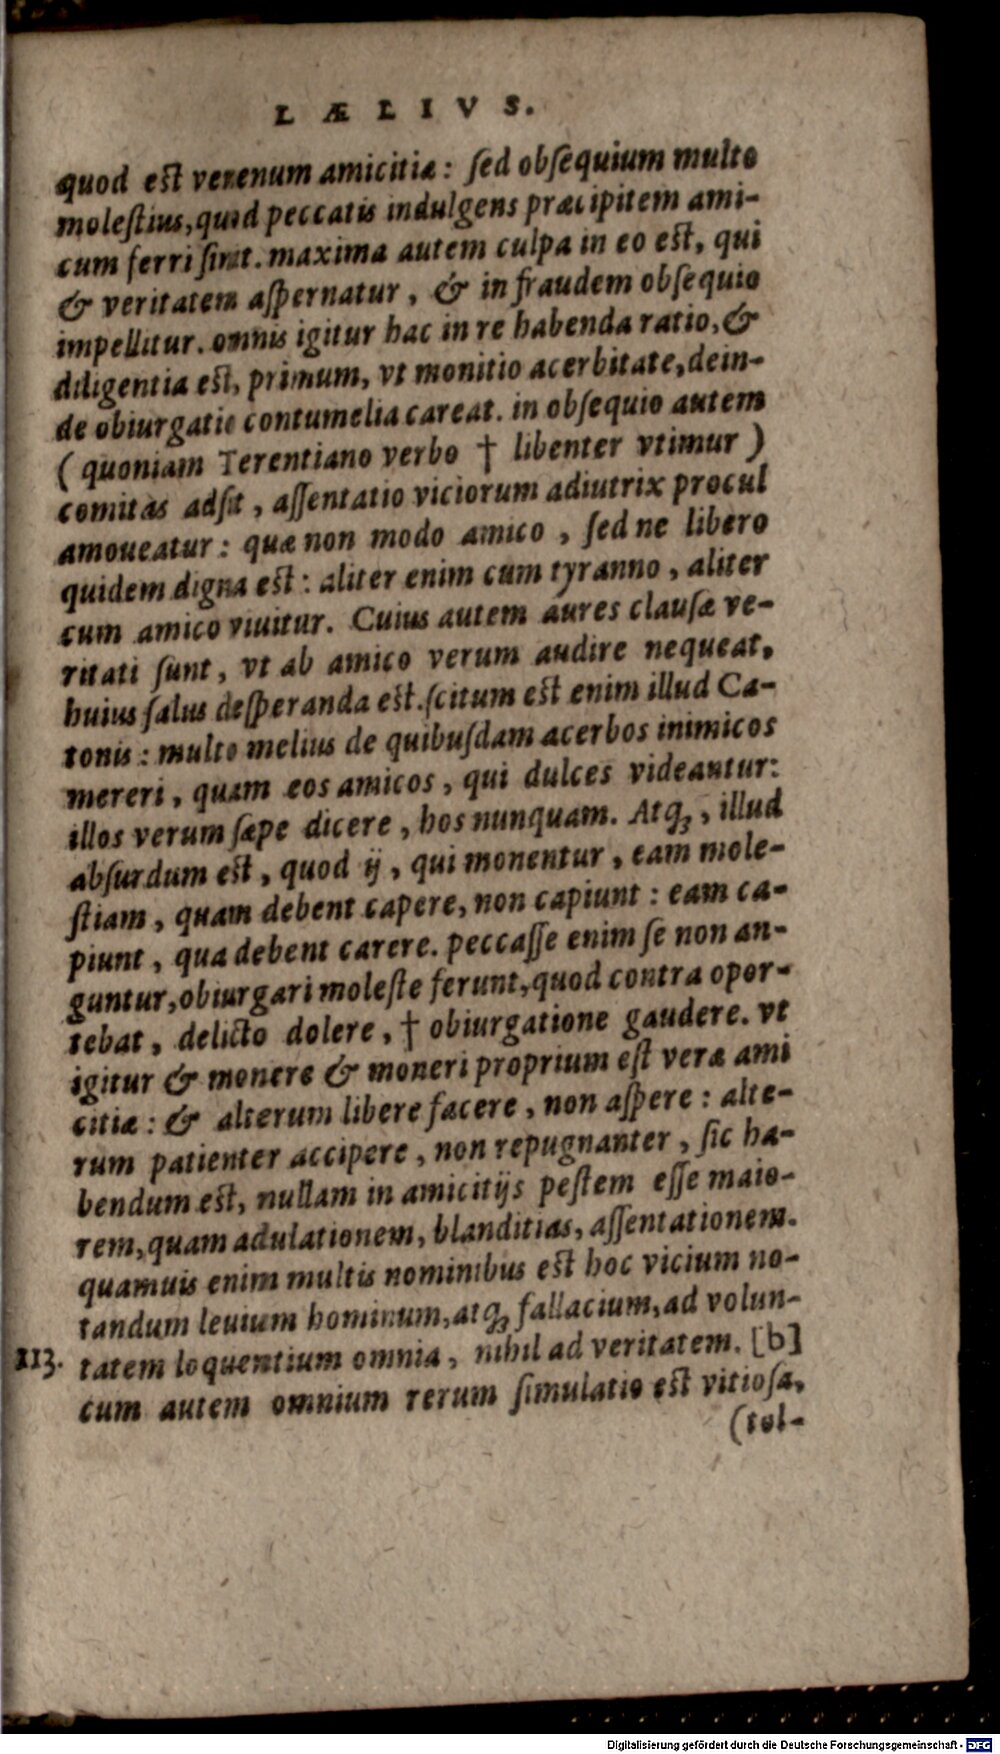 LÆLIVS.
quod est venenum amicitiæ: sed obsequium multo
molestius, quod peccatis indulgens præcipitem ami-
cum ferri sinit. maxima autem culpa in eo est, qui
& veritatem aspernatur, & in fraudem obsequio
impellitur. omnis igitur hac in re habenda ratio, &
diligentia est, primum, vt monitio acerbitate, dein-
de obiurgatio contumelia careat. in obsequio autem
( quoniam Terentiano verbo † libenter vtimur )
comitas adsit, assentatio viciorum adiutrix procul
amoueatur: quæ non modo amico, sed ne libero
quidem digna est: aliter enim cum tyranno, aliter
cum amico viuitur. Cuius autem aures clausæ ve-
ritati sunt, vt ab amico verum audire nequeat,
huius salus desperanda est. scitum est enim illud Ca-
tonis: multo melius de quibusdam acerbos inimicos
mereri, quam eos amicos, qui dulces videantur:
illos verum sæpe dicere, hos nunquam. Atq₃, illud
absurdum est, quod ij, qui monentur, eam mole-
stiam, quam debent capere, non capiunt: eam ca-
piunt, qua debent carere. peccasse enim se non an-
guntur, obiurgari moleste ferunt, quod contra opor-
tebat, delicto dolere, † obiurgatione gaudere. vt
igitur & monere & moneri proprium est veræ ami
citiæ: & alterum libere facere, non aspere: alte-
rum patienter accipere, non repugnanter, sic ha-
bendum est, nullam in amicitijs pestem esse maio-
rem, quam adulationem, blanditias, assentationem.
quamuis enim multis nominibus est hoc vicium no-
tandum leuium hominum, atq₃ fallacium, ad volun-
113. tatem loquentium omnia, nihil ad veritatem. [b]
cum autem omnium rerum simulatio est vitiosa,
(tol-
Digitalisierung gefördert durch die Deutsche Forschungsgemeinschaft - DFG